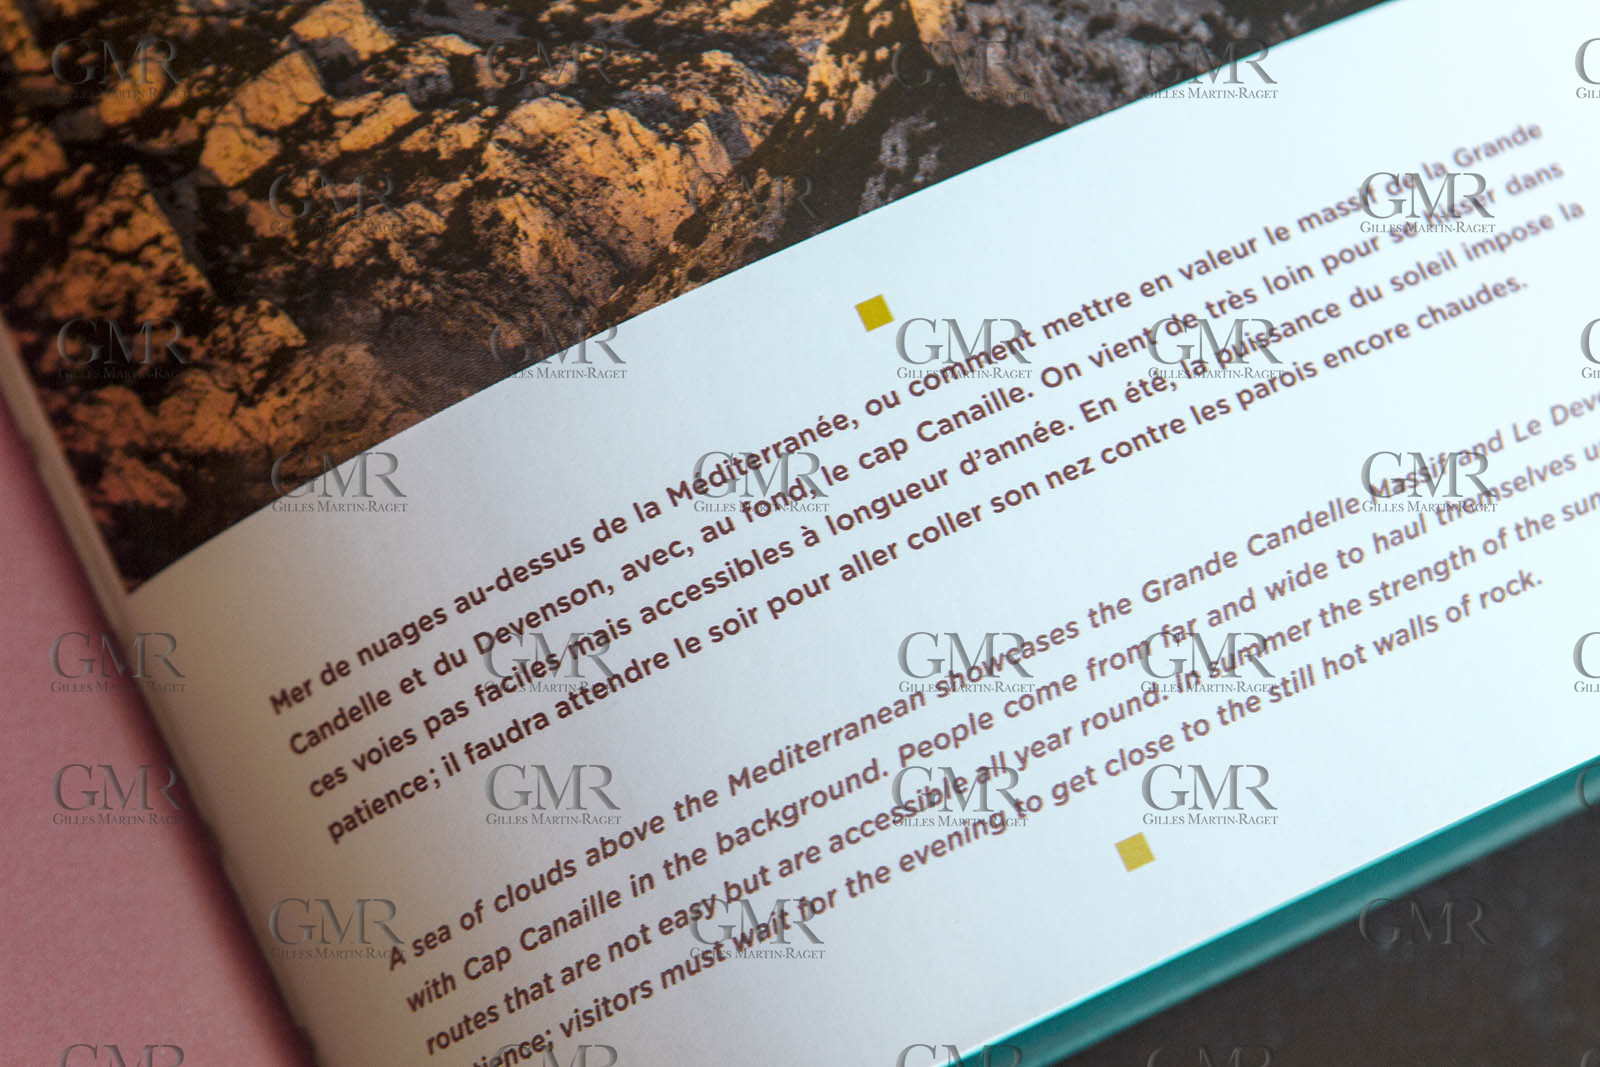 Mer de nuages au-dessus de la Méditerranée, ou comment mettre en valeur le massif de la Grande
Candelle et du Devenson, avec, au fond, le cap Canaille. On vient de très loin pour se hisser dans
ces voies pas faciles mais accessibles à longueur d'année. En été, la puissance du soleil impose la
patience; il faudra attendre le soir pour aller coller son nez contre les parois encore chaudes.
A sea of clouds above the Mediterranean showcases the Grande Candelle Massif and Le Deve
with Cap Canaille in the background. People come from far and wide to haul themselves u
routes that are not easy but are accessible all year round. In summer the strength of the sun
tience; visitors must wait for the evening to get close to the still hot walls of rock.
GMR
GILLES MARTIN-RAGET